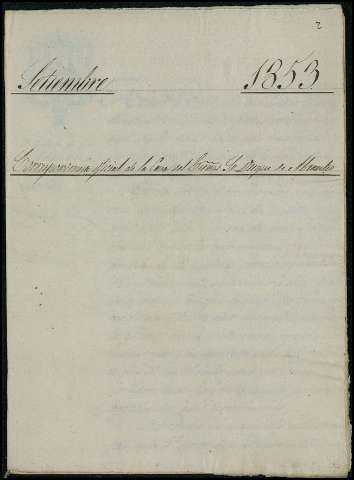 2
Setiembre 1853
Correspondencia oficial de la Casa del Excmo. Sr. Duque de Abrantes